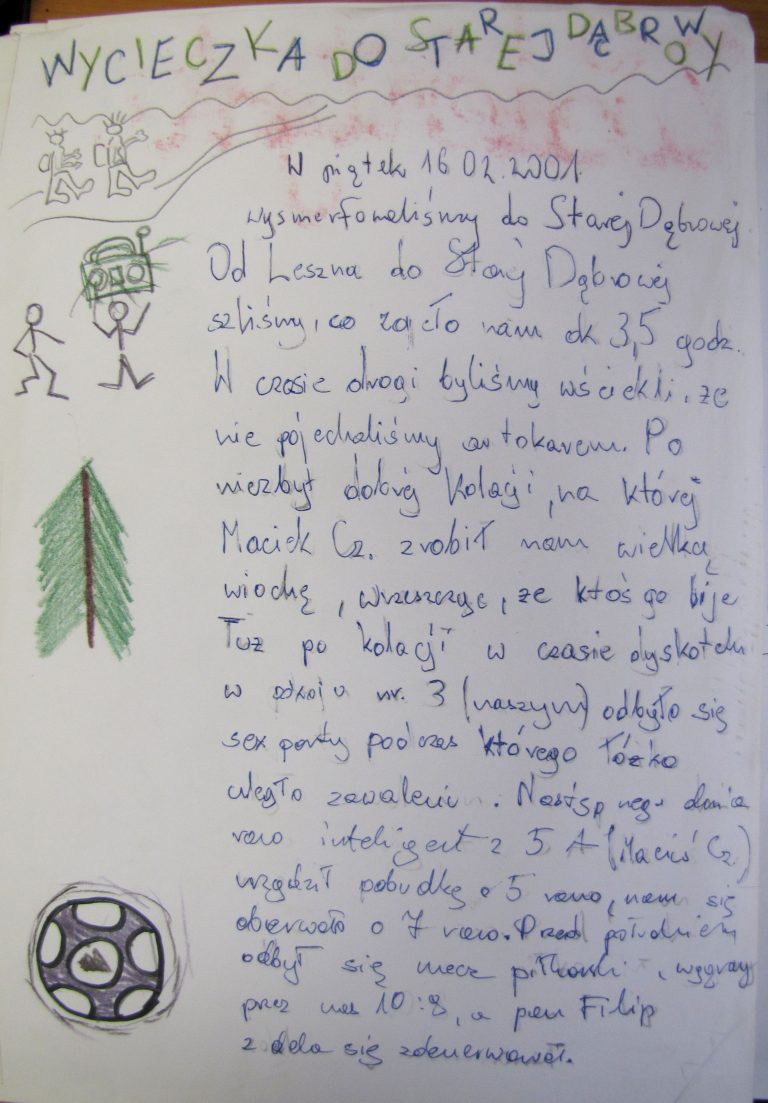 WYCIECZKA DO STAREJ DĄBROWY
W piątek 16 02.2001.
wysmerfowaliśmy do Starej Dąbrowej.
Od Leszna do Starej Dąbrowej
szliśmy, co zajęło nam ok 3,5 godz.
W czasie drogi byliśmy wściekli, że
nie pojechaliśmy autokarem. Po
niezbyt dobrej kolacji, na której
Maciek Cz. zrobił nam wielką
wiochę, wrzeszcząc, że ktoś go bije
Tuż po kolacji w czasie dyskoteki
w pokoju nr. 3 (naszym) odbyło się
sex party podczas którego łóżko
uległo zawaleniu. Następnego dnia
rano inteligent z 5 A (Maciuś Cz.)
urządził pobudkę o 5 rano, nam się
oberwało o 7 rano. Przed południem
odbył się mecz piłkarski, wygrany
przez nas 10:8, a pan Filip
z deka się zdenerwował.